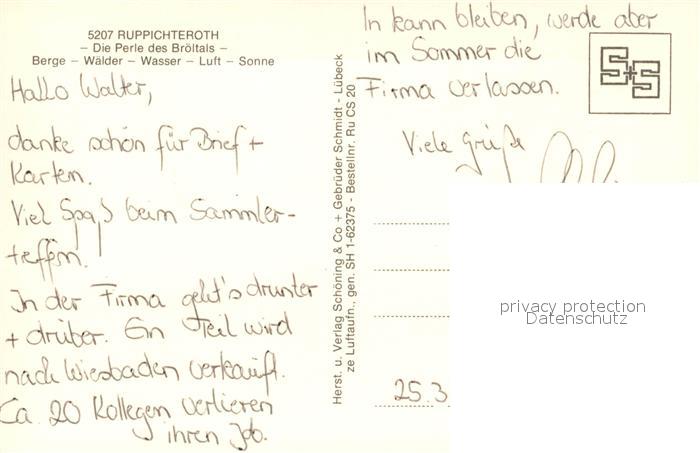 5207 RUPPICHTEROTH
– Die Perle des Bröltals –
Berge – Wälder – Wasser – Luft – Sonne
Hallo Walter,
danke schön für Brief +
Karten.
Viel Spaß beim Sammler-
treffen.
In der Firma geht's drunter
+ drüber. Ein Teil wird
nach Wiesbaden verkauft.
Ca. 20 Kollegen verlieren
ihren Job.
Herst. u. Verlag Schöning & Co + Gebrüder Schmidt - Lübeck
ze Luftaufn., gen. SH 1-62375 - Bestellnr. Ru CS 20
In kann bleiben, werde aber
im Sommer die
Firma verlassen.
Viele Grüße
S+S
privacy protection
Datenschutz
25.3